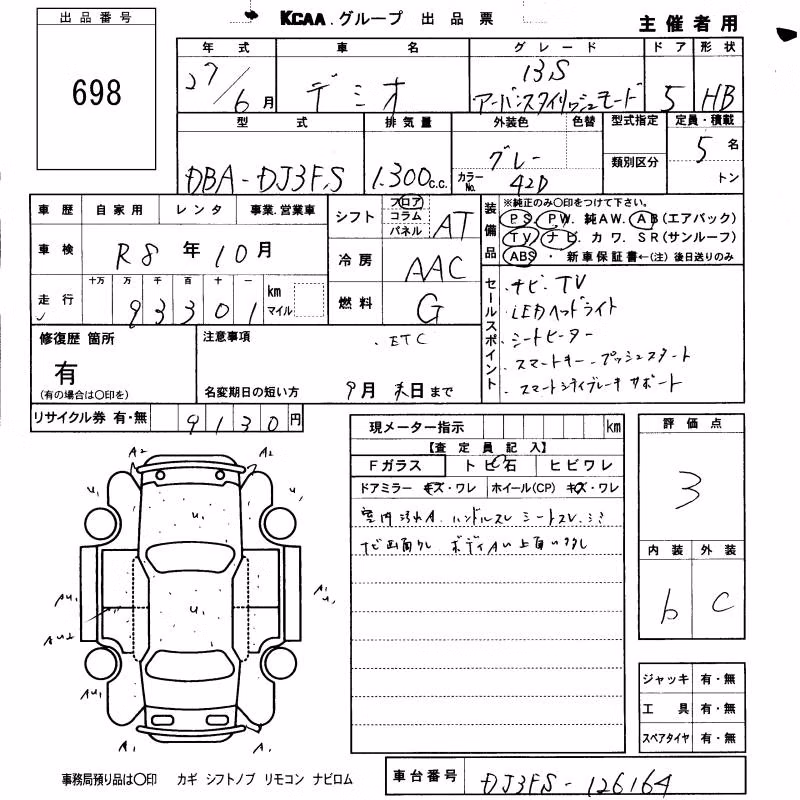 出品番号
698
KCAA.グループ 出品票
主催者用
年式 車名 グレード ドア 形状
27/6月 デミオ 13S アーバンスタイリッシュモード 5 HB
型式 排気量 外装色 色替 型式指定 定員・積載
類別区分
DBA-DJ3FS 1.300c.c. グレー カラーNo. 42D 5名
トン
車歴 自家用 レンタ 事業.営業車
車検 R8年10月
走行 十万 万 千 百 十 一
93301 km マイル
シフト フロア コラム パネル AT
冷房 AAC
燃料 G
装備品 ※純正のみ○印をつけて下さい。
PS. PW. 純AW. AB(エアバック)
TV ナビ. カワ. SR(サンルーフ)
ABS ・ 新車保証書←(注)後日送りのみ
セールスポイント
.ナビ.TV
.LEDヘッドライト
.シートヒーター
.スマートキー.プッシュスタート
.スマートシティブレーキサポート
修復歴 箇所
有
(有の場合は○印を)
注意事項
.ETC
名変期日の短い方 9月末日まで
リサイクル券 有・無 9130円
現メーター指示 km
【査定員記入】
Fガラス トビ石 ヒビワレ
ドアミラー キズ・ワレ ホイール(CP) キズ・ワレ
室内汚れA. ハンドルスレ シートスレ.シミ
ナビ画面キレ ボディAU上面
評価点
3
内装 外装
b C
A2 A2
U1 U1 U1
U1
AU1 A1 U1
AU2
AU1
A1 A1
ジャッキ 有・無
工具 有・無
スペアタイヤ 有・無
事務局預り品は○印 カギ シフトノブ リモコン ナビロム
車台番号 DJ3FS-126164